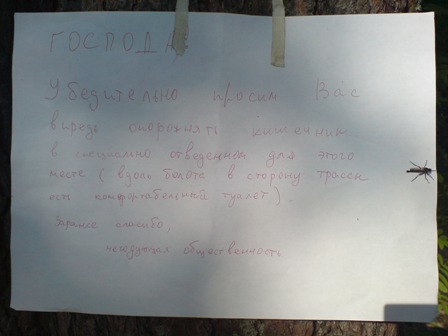 ГОСПОДА
Убедительно просим Вас
впредь опорожнять кишечник
в специально отведенном для этого
месте (вдоль болота в сторону трассы
есть комфортабельный туалет).
Заранее спасибо,
негодующая общественность